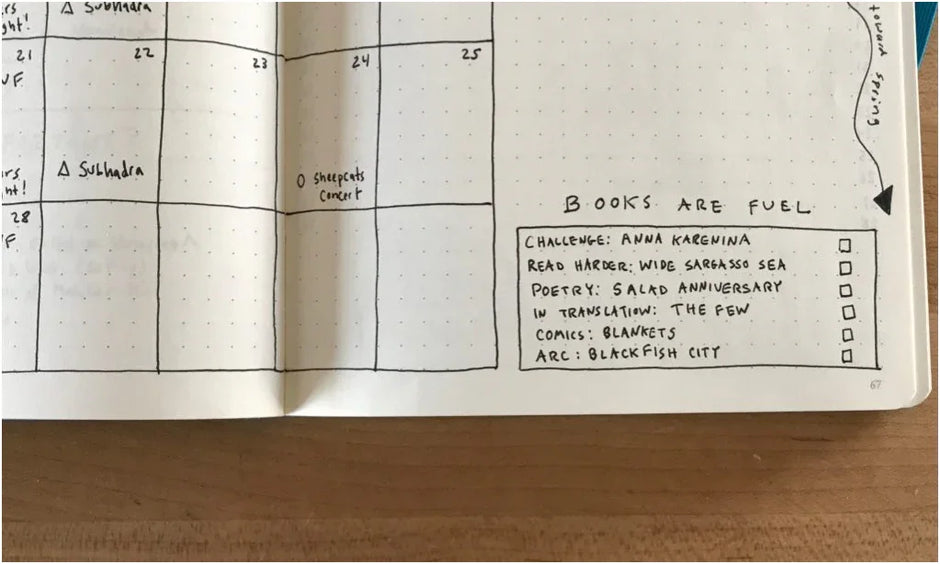 rs
ght!
△ Subhadra
21
F
22
23
24
25
toward spring
rs
ht!
△ Subhadra
○ Sheepcats
concert
28
F
BOOKS ARE FUEL
CHALLENGE: ANNA KARENINA
READ HARDER: WIDE SARGASSO SEA
POETRY: SALAD ANNIVERSARY
IN TRANSLATION: THE FEW
COMICS: BLANKETS
ARC: BLACKFISH CITY
67